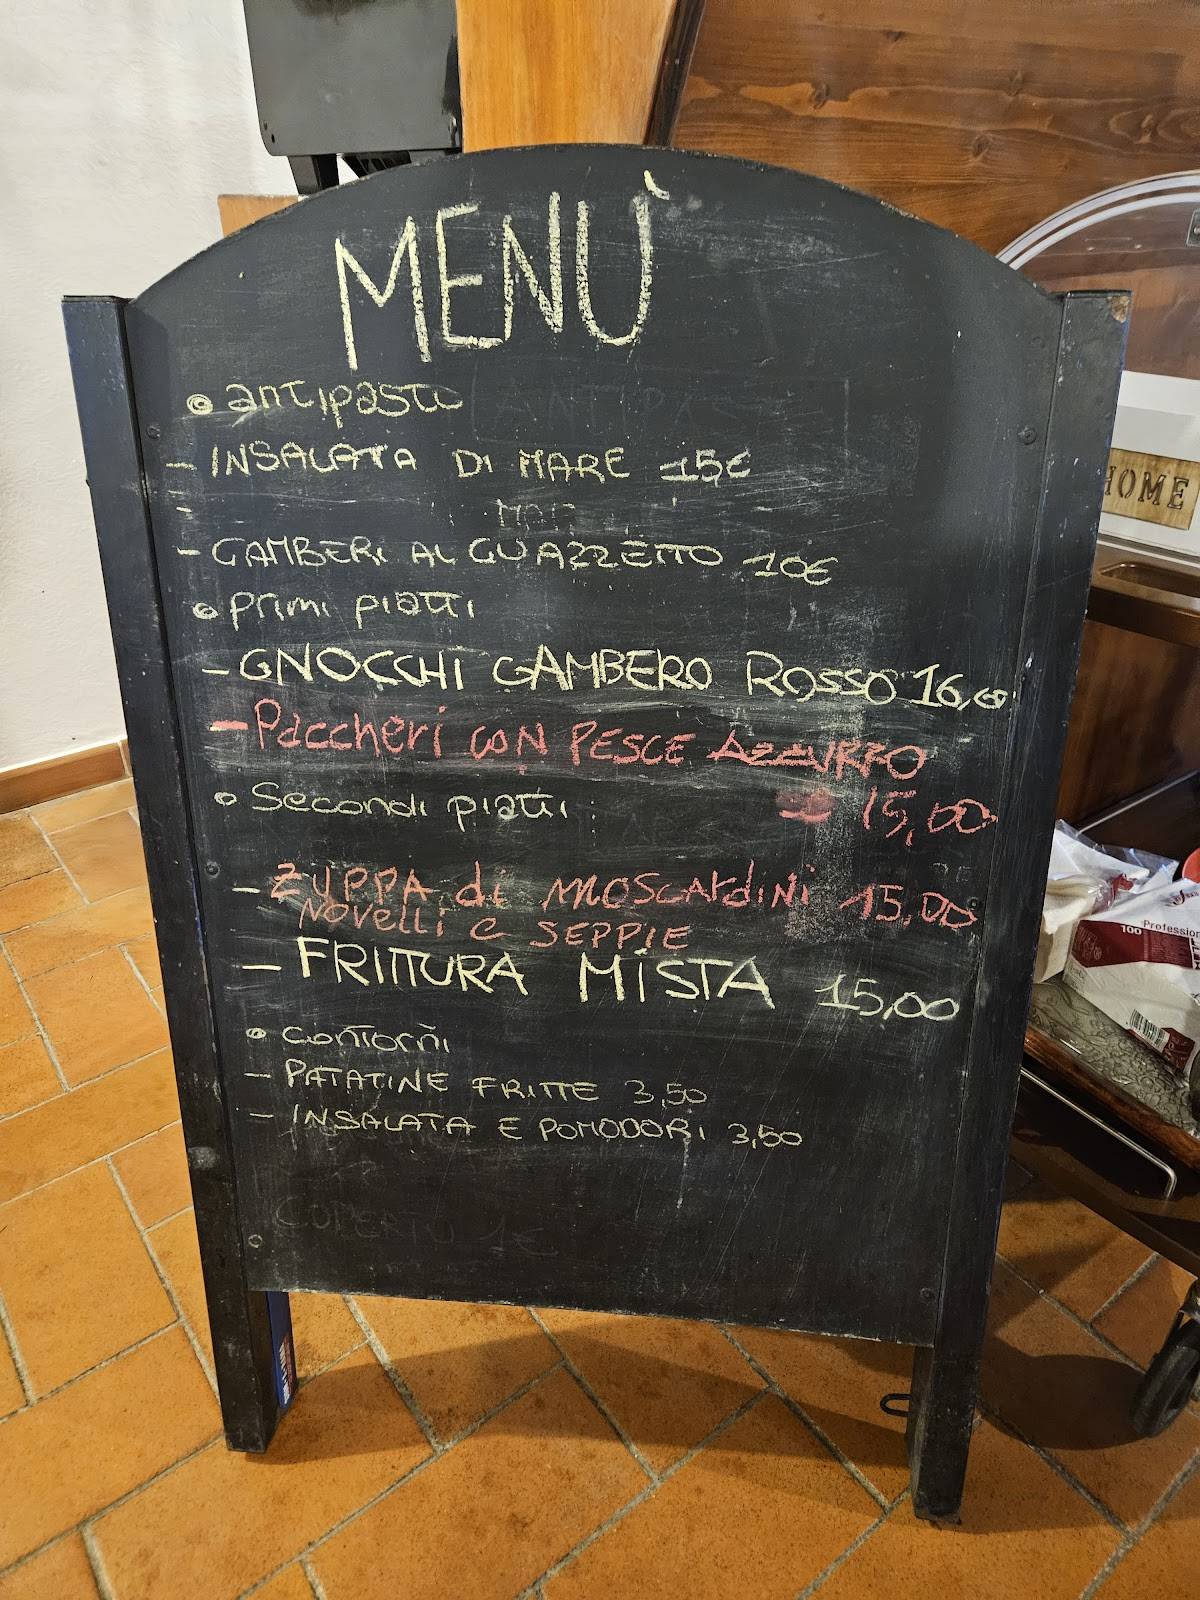 MENÙ
antipasto
ANTIPAST
- INSALATA DI MARE 15€
- GAMBERI AL GUAZZETTO 10€
primi piatti
- GNOCCHI GAMBERO ROSSO 16,00
- Paccheri CON PESCE AZZURRO
15,00
Secondi piatti
- ZUPPA di MOSCARdiNi 15,00
NOVELLI e SEPPIE
- FRITTURA MISTA 15,00
contorni
- PATATINE FRITTE 3,50
- INSALATA E POMODORI 3,50
COPERTO 1€
HOME
Professional
100